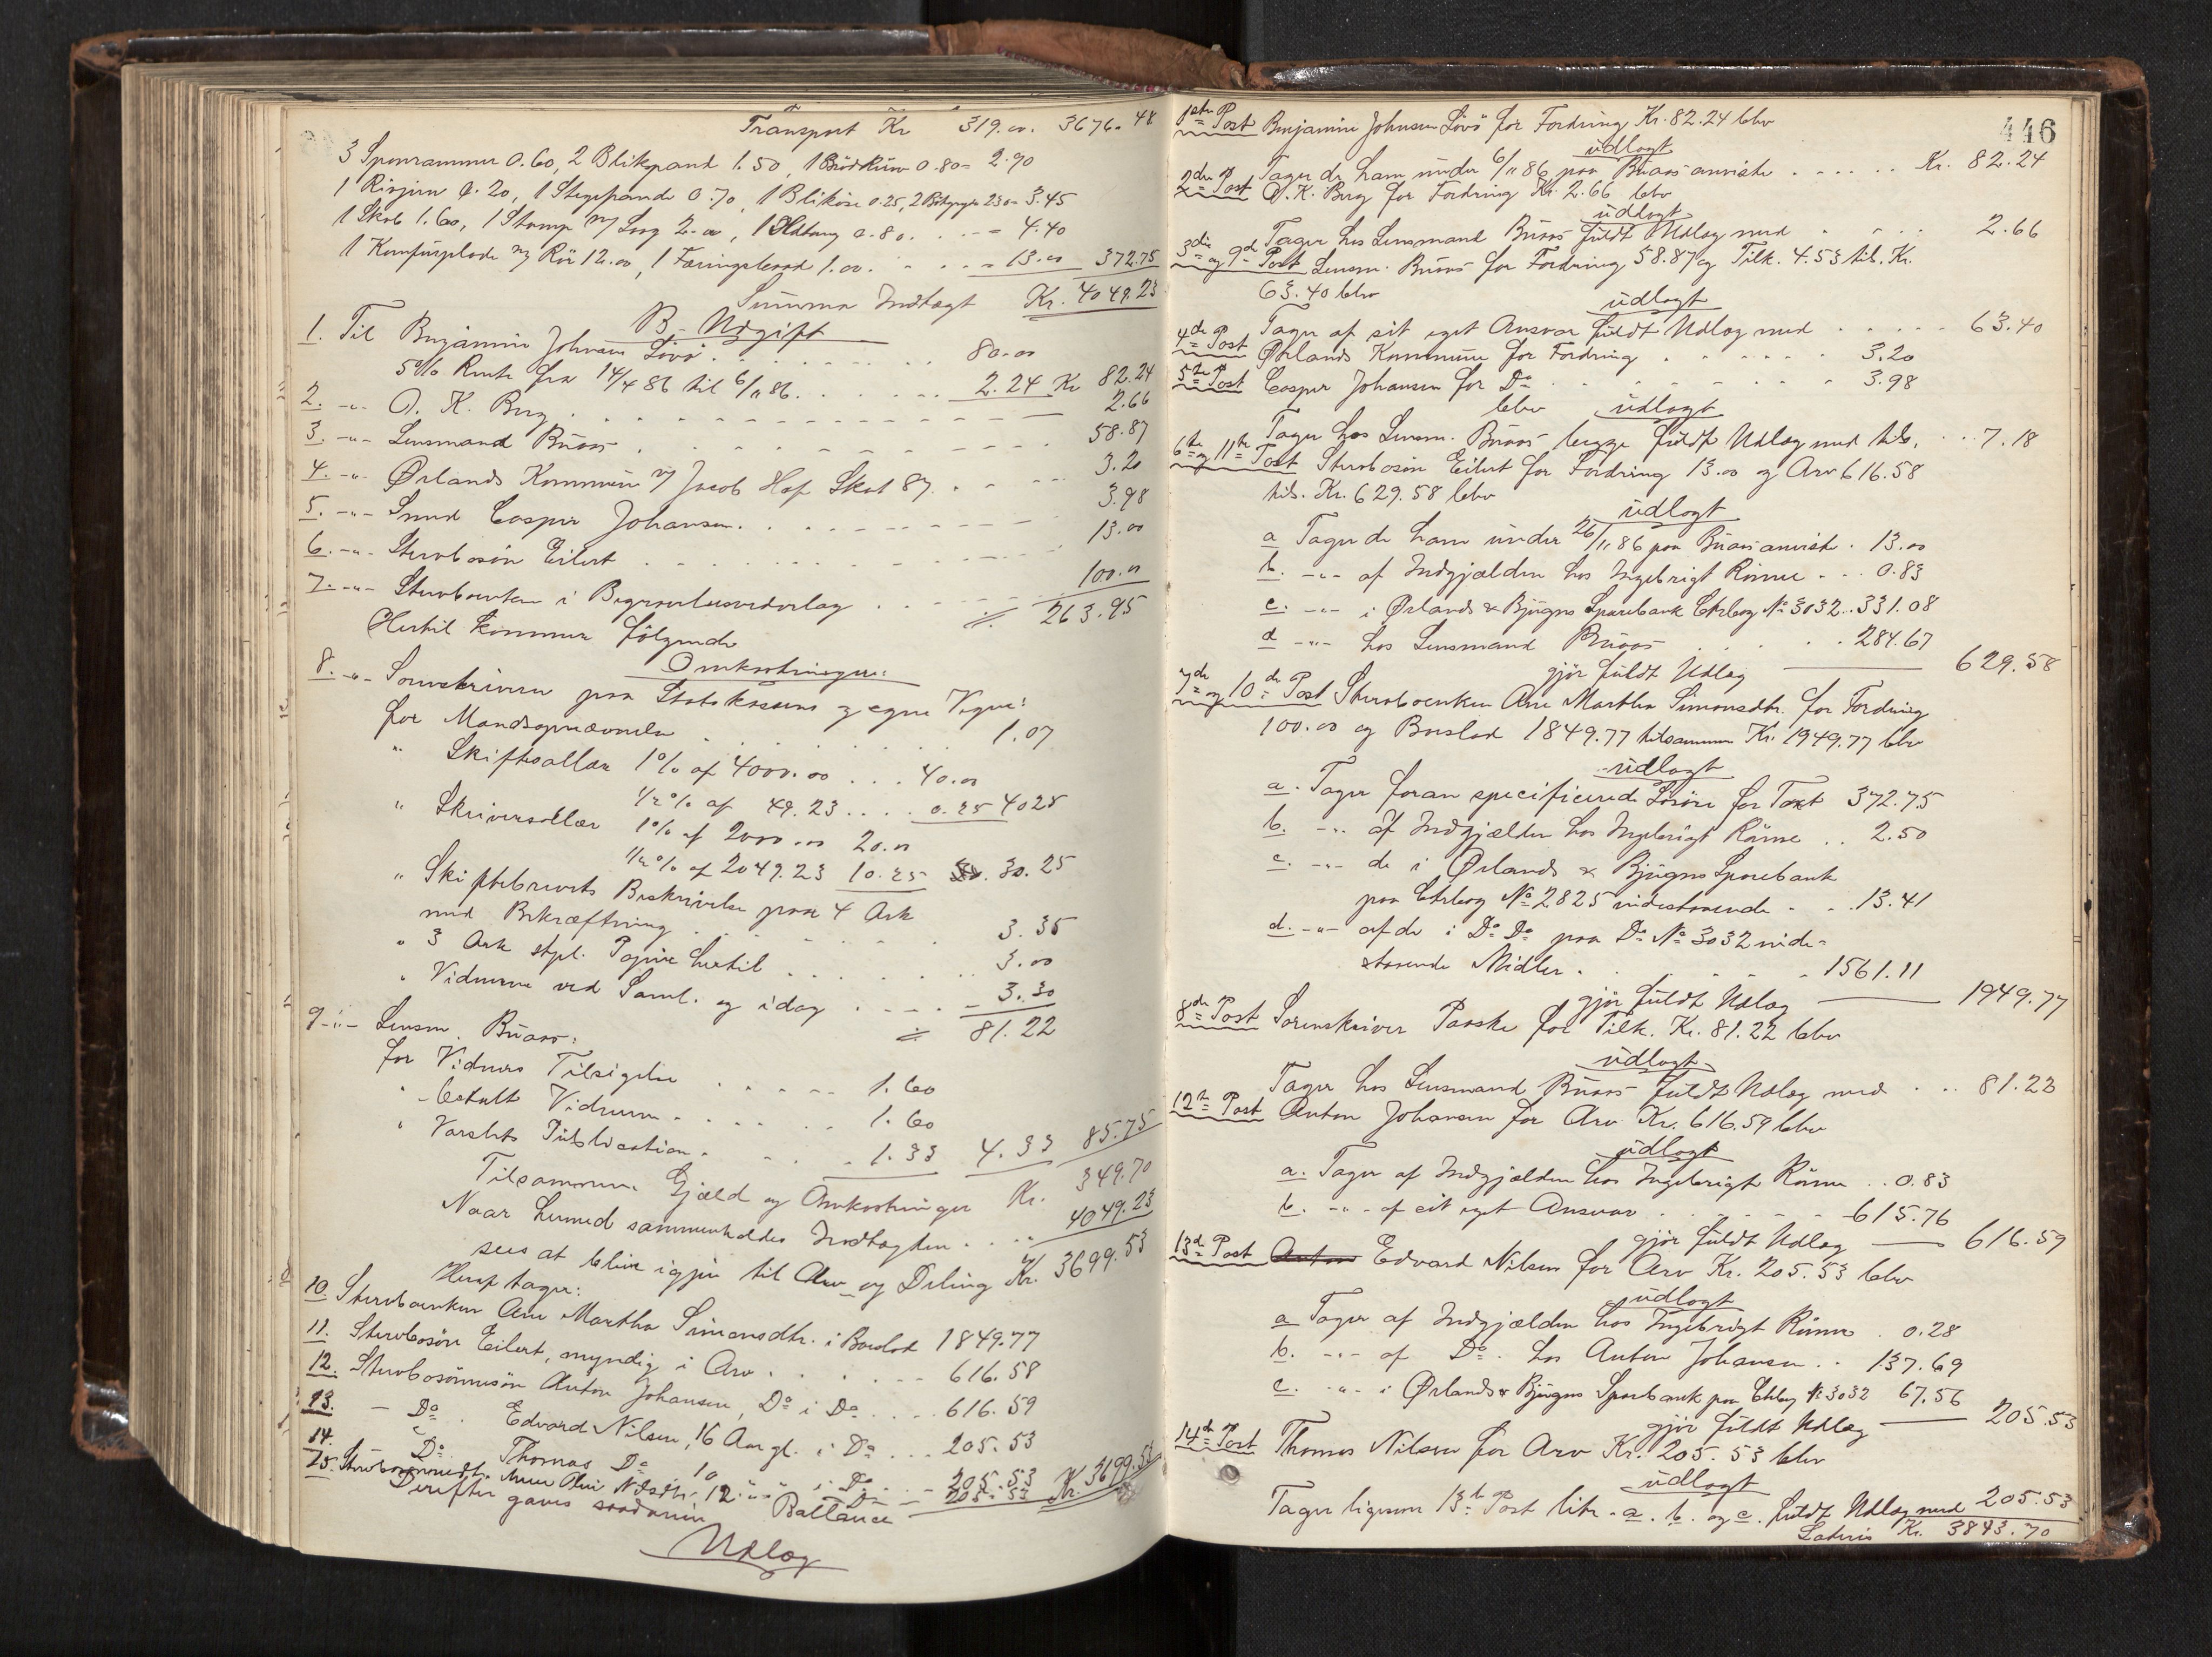 Transport Kr 319.00. 3676.48
3 Sponrammer 0.60, 2 Blikspand 1.50, 1 Brödkurv 0.80 = 2.90
1 Rivjern 0.20, 1 Stegepande 0.70, 1 Bliköse 0.25, 2 230 = 3.45
1 Skab 1.60, 1 Stamp m/ Laag 2.00, 1 Ildtang 0.80. . . - = 4.40
1 Komfurplade m/ Rör 12.00, 1 1.00. . . . - 13.00 372.75
Summa Indtægt Kr. 4049.23
B. Udgift
1. Til Benjamin Johnsen Lövö . . . . . . 80.00
5% Rente fra 14/4 86 til 6/11 86. . . . . 2.24 Kr 82.24
2. -"- O. K. Berg . . . . . . . . 2.66
3. -"- Lensmand Buaas . . . . . . . 58.87
4. -"- Ørlands Kommune v/ Jacob Hof Skat 87 . . . . 3.20
5. -"- Smed Casper Johansen. . . . . . . 3.98
6. -"- Stervbosøn Eilert . . . . . . . 13.00
7. -"- Stervboenken i Begravelsesvederlag . . . . . 100.00
Hertil kommer følgende ⁒ 263.95
Omkostninger:
8. -"- Sorenskriveren paa Statskassens og egne Vegne:
for Mandsopnævnelse . . . . . . 1.07
" Skiftesallær 1% af 4000.00 . . . 40.00
1/2% af 49.23 . . . . 0.25 40.25
" Skriversallær 1% af 2000.00 20.00
1/2% af 2049.23 10.25 30.25
" Skiftebrevets Beskrivelse paa 4 Ark
med Bekræftning . . . . . . 3.35
" 3 Ark stpl. Papir hertil . . . . . 3.00
" Vidnerne ved Saml. og idag . . . . 3.30
⁒ 81.22
9. -"- Lensm. Buaas:
for Vidners Tilsigelse . . . . . 1.60
" betalt Vidnerne . . . . . . 1.60
" Varslets Publication . . . . 1.33 4.33 85.75
Tilsammen Gjæld og Omkostninger Kr. 349.70
Naar hermed sammenholdes Indtægten . . . . 4049.23
sees at blive igjen til Arv og Deling Kr. 3699.53
Heraf tager:
10. Stervboenken Ane Martha Simonsdtr. i Boeslod 1849.77
11. Stervbosön Eilert, myndig i Arv . . . . . . 616.58
12. Stervbosönnesön Anton Johansen, Do i Do . . . . 616.59
13. - Do . Edvard Nilsen, 16 Aar gl. i Do . . . 205.53
14. Do Thomas Do 10 " " i Do . . . 205.53
15. Nilsdtr. 12 " " Do - 205.53 Kr. 3699.53
Derefter gaves saadanne Ballance
Udlæg
446
1ste Post Benjamin Johnsen Lövö for Fordring Kr. 82.24 blev
udlagt
Tager de ham under 6/11 86 paa Buaas anviste . . . . . . Kr. 82.24
2den Post O. K. Berg for Fordring Kr. 2.66 blev
udlagt
Tager hos Lensmand Buaas fuldt Udlæg med . . . . 2.66
3die og 9de Post Lensm. Buaas for Fordring 58.87 og Tilk. 4.53 tils. Kr.
63.40 blev
udlagt
Tager af sit eget Ansvar fuldt Udlæg med . . . . . 63.40
4de Post Ørlands Kommune for Fordring . . . . . . 3.20
5te Post Casper Johansen for Do . . . . . . . . 3.98
blev udlagt
Tager hos Lensm. Buaas begge fuldt Udlæg med tils. . . . 7.18
6te og 11te Post Stervbosön Eilert for Fordring 13.00 og Arv 616.58
tils. Kr. 629.58 blev
udlagt
a Tager de ham under 26/11 86 paa Buaas anviste . 13.00
b. -"- af Indgjælden hos Ingebrigt Rönne . . . 0.83
c. -"- i Ørlands & Bjugns Sparebank Ctrbog No 3032 . . 331.08
d -"- hos Lensmand Buaas . . . . . 284.67
gjör fuldt Udlæg 629.58
7de og 10de Post Stervboenken Ane Martha Simonsdtr. for Fordring
100.00 og Boeslod 1849.77 tilsammen Kr. 1949.77 blev
udlagt
a. Tager foran specificerede Lösöre for Taxt 372.75
b. -"- af Indgjælden hos Ingebrigt Rönne . . 2.50
c. -"- de i Ørlands & Bjugns Sparebank
paa Ctrbog No 2825 indestaaende . . . 13.41
d. -"- af de i Do Do paa Do No 3032 inde-
staaende Midler . . . . . . 1561.11
gjör fuldt Udlæg 1949.77
8de Post Sorenskriver Paaske for Tilk. Kr. 81.22 blev
udlagt
Tager hos Lensmand Buaas fuldt Udlæg med . . . 81.22
12te Post Anton Johansen for Arv Kr. 616.59 blev
udlagt
a. Tager af Indgjælden hos Ingebrigt Rönne . . 0.83
b. -"- af sit eget Ansvar . . . . . 615.76
gjör fuldt Udlæg 616.59
13de Post Edvard Nilsen for Arv Kr. 205.53 blev
udlagt
a Tager af Indgjælden hos Ingebrigt Rönne . 0.28
b. -"- af Do . hos Anton Johansen . . 137.69
c. -"- i Ørlands & Bjugns Sparebank paa Ctrbog No 3032 67.56
gjör fuldt Udlæg 205.53
14de Post Thomas Nilsen for Arv Kr. 205.53 blev
udlagt
Tager ligesom 13de Post litr. a. b. og c. fuldt Udlæg med 205.53
Lateris Kr. 3843.70